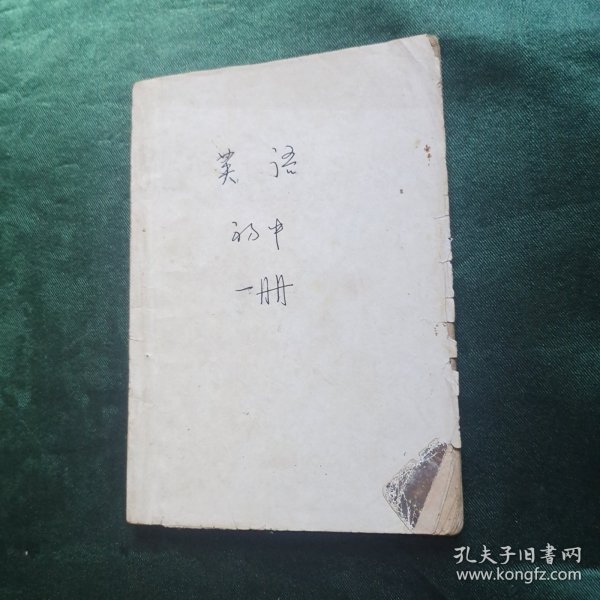 英语
初中
一册
孔夫子旧書网
www.kongfz.com